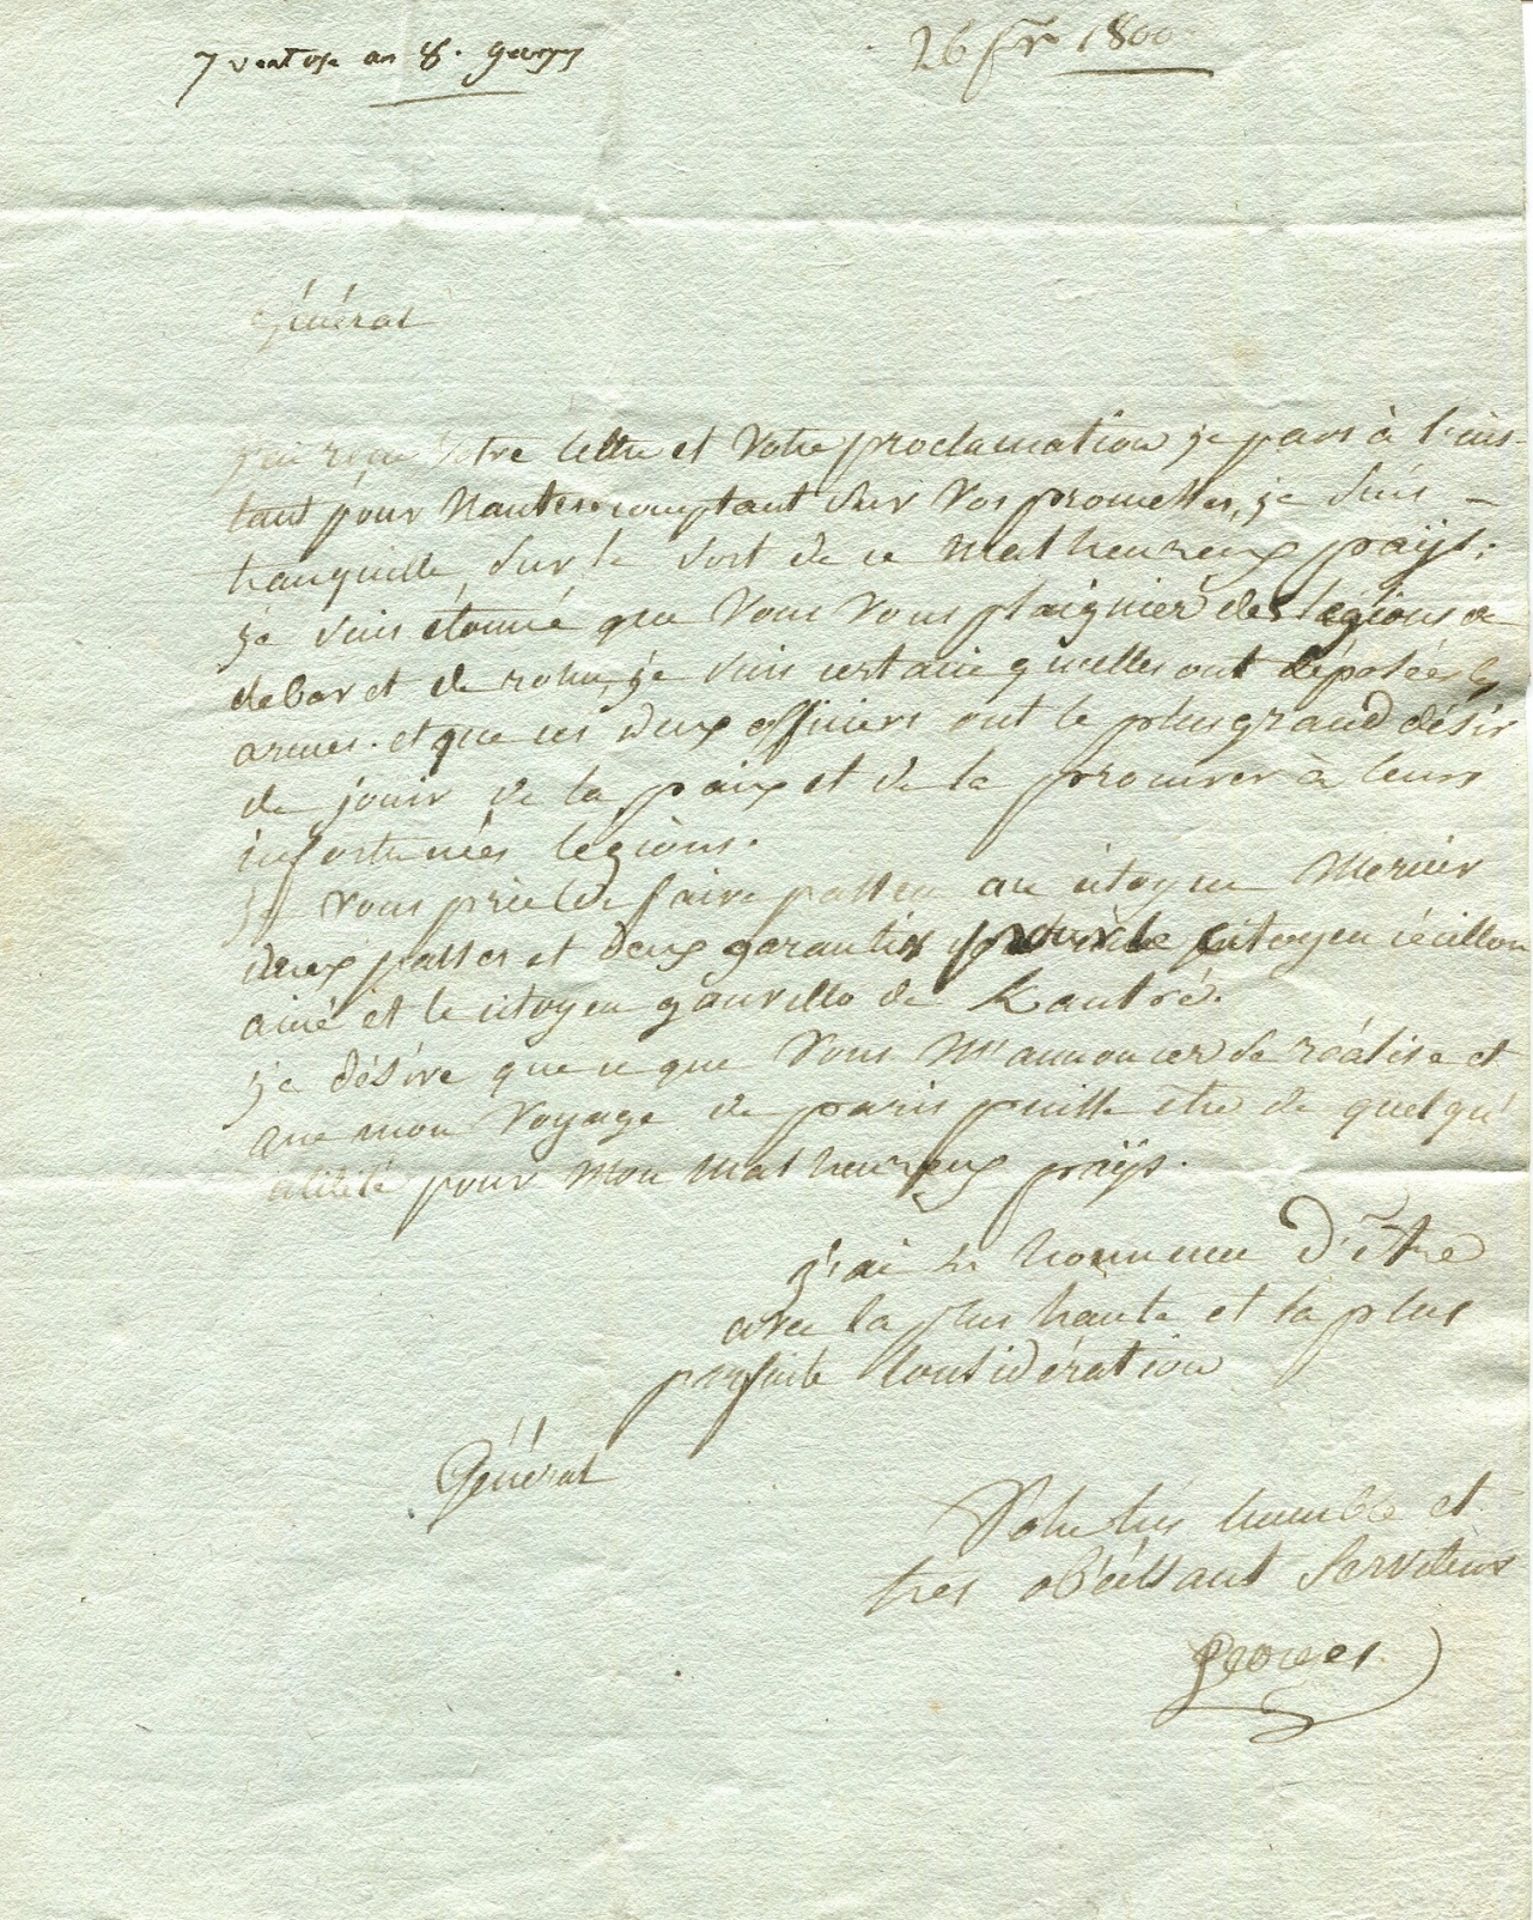 7 ventose an 8. georges
26 fer 1800
Général
j'ai reçu votre lettre et votre proclamation je pars à l'ins-
tant pour Nantes. comptant sur vos promesses, je suis
tranquille sur le sort de ce malheureux païs;
je suis étonné que vous vous plaignier des légions de
debar et de rohu, je suis certain quelles ont déposées les
armes. et que ces deux officiers ont le plus grand désir
de jouir de la paix et de la procurer à leurs
infortunées légions.
je vous prie de faire passer au citoyen Mercier
deux passes et deux garanties pour le citoyen
ainé et le citoyen de
je désire que ce que vous m'annoncer se réalise et
que mon voyage de paris puisse etre de quelqu'
utilité pour mon malheureux païs.
j'ai l'honneur d'être
avec la plus haute et la plus
parfaite considération
Général
Votre très humble et
tres obéissant serviteur
Georges